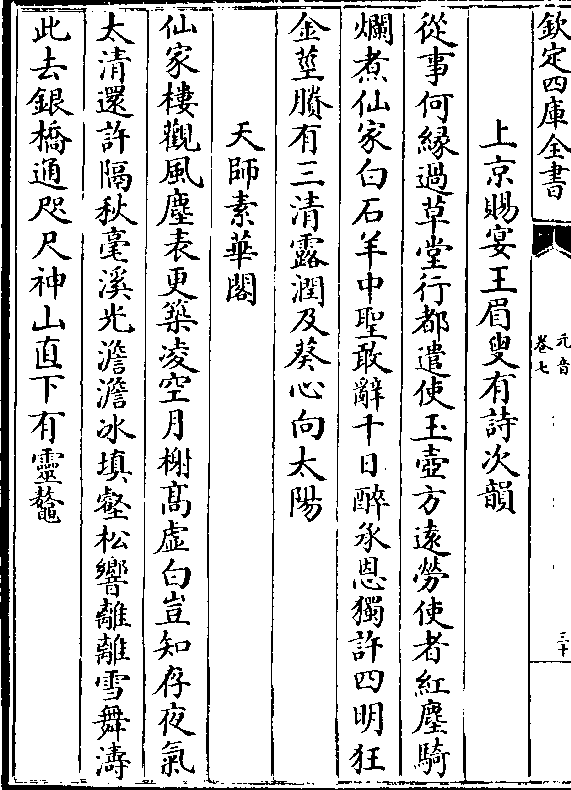 欽定四庫全書
元音
卷七
三十
上京賜宴王眉叟有詩次韻
從事何緣過草堂行都遣使玉壺方遠勞使者紅塵騎
爛煮仙家白石羊中聖敢辭千日醉承恩獨許四明狂
金莖賸有三清露潤及葵心向太陽
天師素華閣
仙家樓觀風塵表更築凌空月榭髙虛白豈知存夜氣
太清還許隔秋毫溪光澹澹冰填壑松響離離雪舞濤
此去銀橋通咫尺神山直下有靈鼇